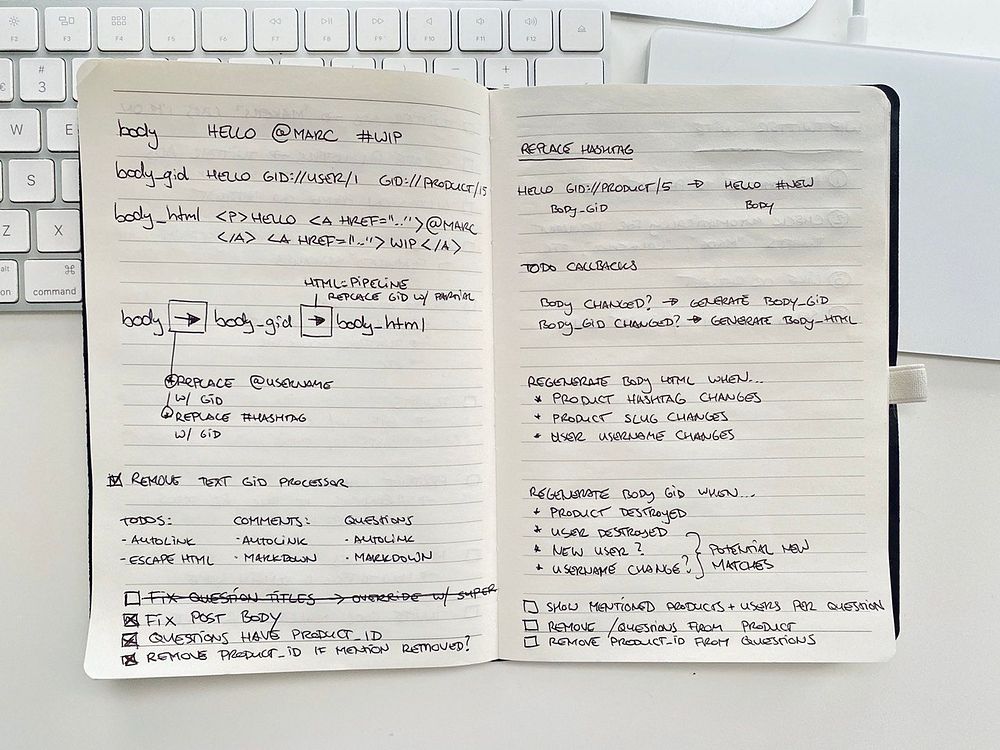 F2
F3
F4
F5
F6
F7
F8
F9
F10
F11
F12
#
3
W
E
S
Z
X
alt
⌘
command
body HELLO @MARC #WIP
body_gid HELLO GID://USER/1 GID://PRODUCT/15
body_html <P>HELLO <A HREF="..">@MARC
</A> <A HREF="..">WIP</A>
HTML::PIPELINE
REPLACE GID W/ PARTIAL
body → body_gid → body_html
REPLACE @USERNAME
W/ GID
REPLACE #HASHTAG
W/ GID
REMOVE TEXT GID PROCESSOR
TODOS: COMMENTS: QUESTIONS
- AUTOLINK - AUTOLINK - AUTOLINK
- ESCAPE HTML - MARKDOWN - MARKDOWN
FIX QUESTION TITLES → OVERRIDE W/ SUPER
FIX POST BODY
QUESTIONS HAVE PRODUCT_ID
REMOVE PRODUCT_ID IF MENTION REMOVED?
REPLACE HASHTAG
HELLO GID://PRODUCT/5 → HELLO #NEW
BODY_GID BODY
TODO CALLBACKS
BODY CHANGED? → GENERATE BODY_GID
BODY_GID CHANGED? → GENERATE BODY_HTML
REGENERATE BODY HTML WHEN...
* PRODUCT HASHTAG CHANGES
* PRODUCT SLUG CHANGES
* USER USERNAME CHANGES
REGENERATE BODY GID WHEN...
* PRODUCT DESTROYED
* USER DESTROYED
* NEW USER? } POTENTIAL NEW
* USERNAME CHANGE? MATCHES
SHOW MENTIONED PRODUCTS + USERS PER QUESTION
REMOVE /QUESTIONS FROM PRODUCT
REMOVE PRODUCT_ID FROM QUESTIONS